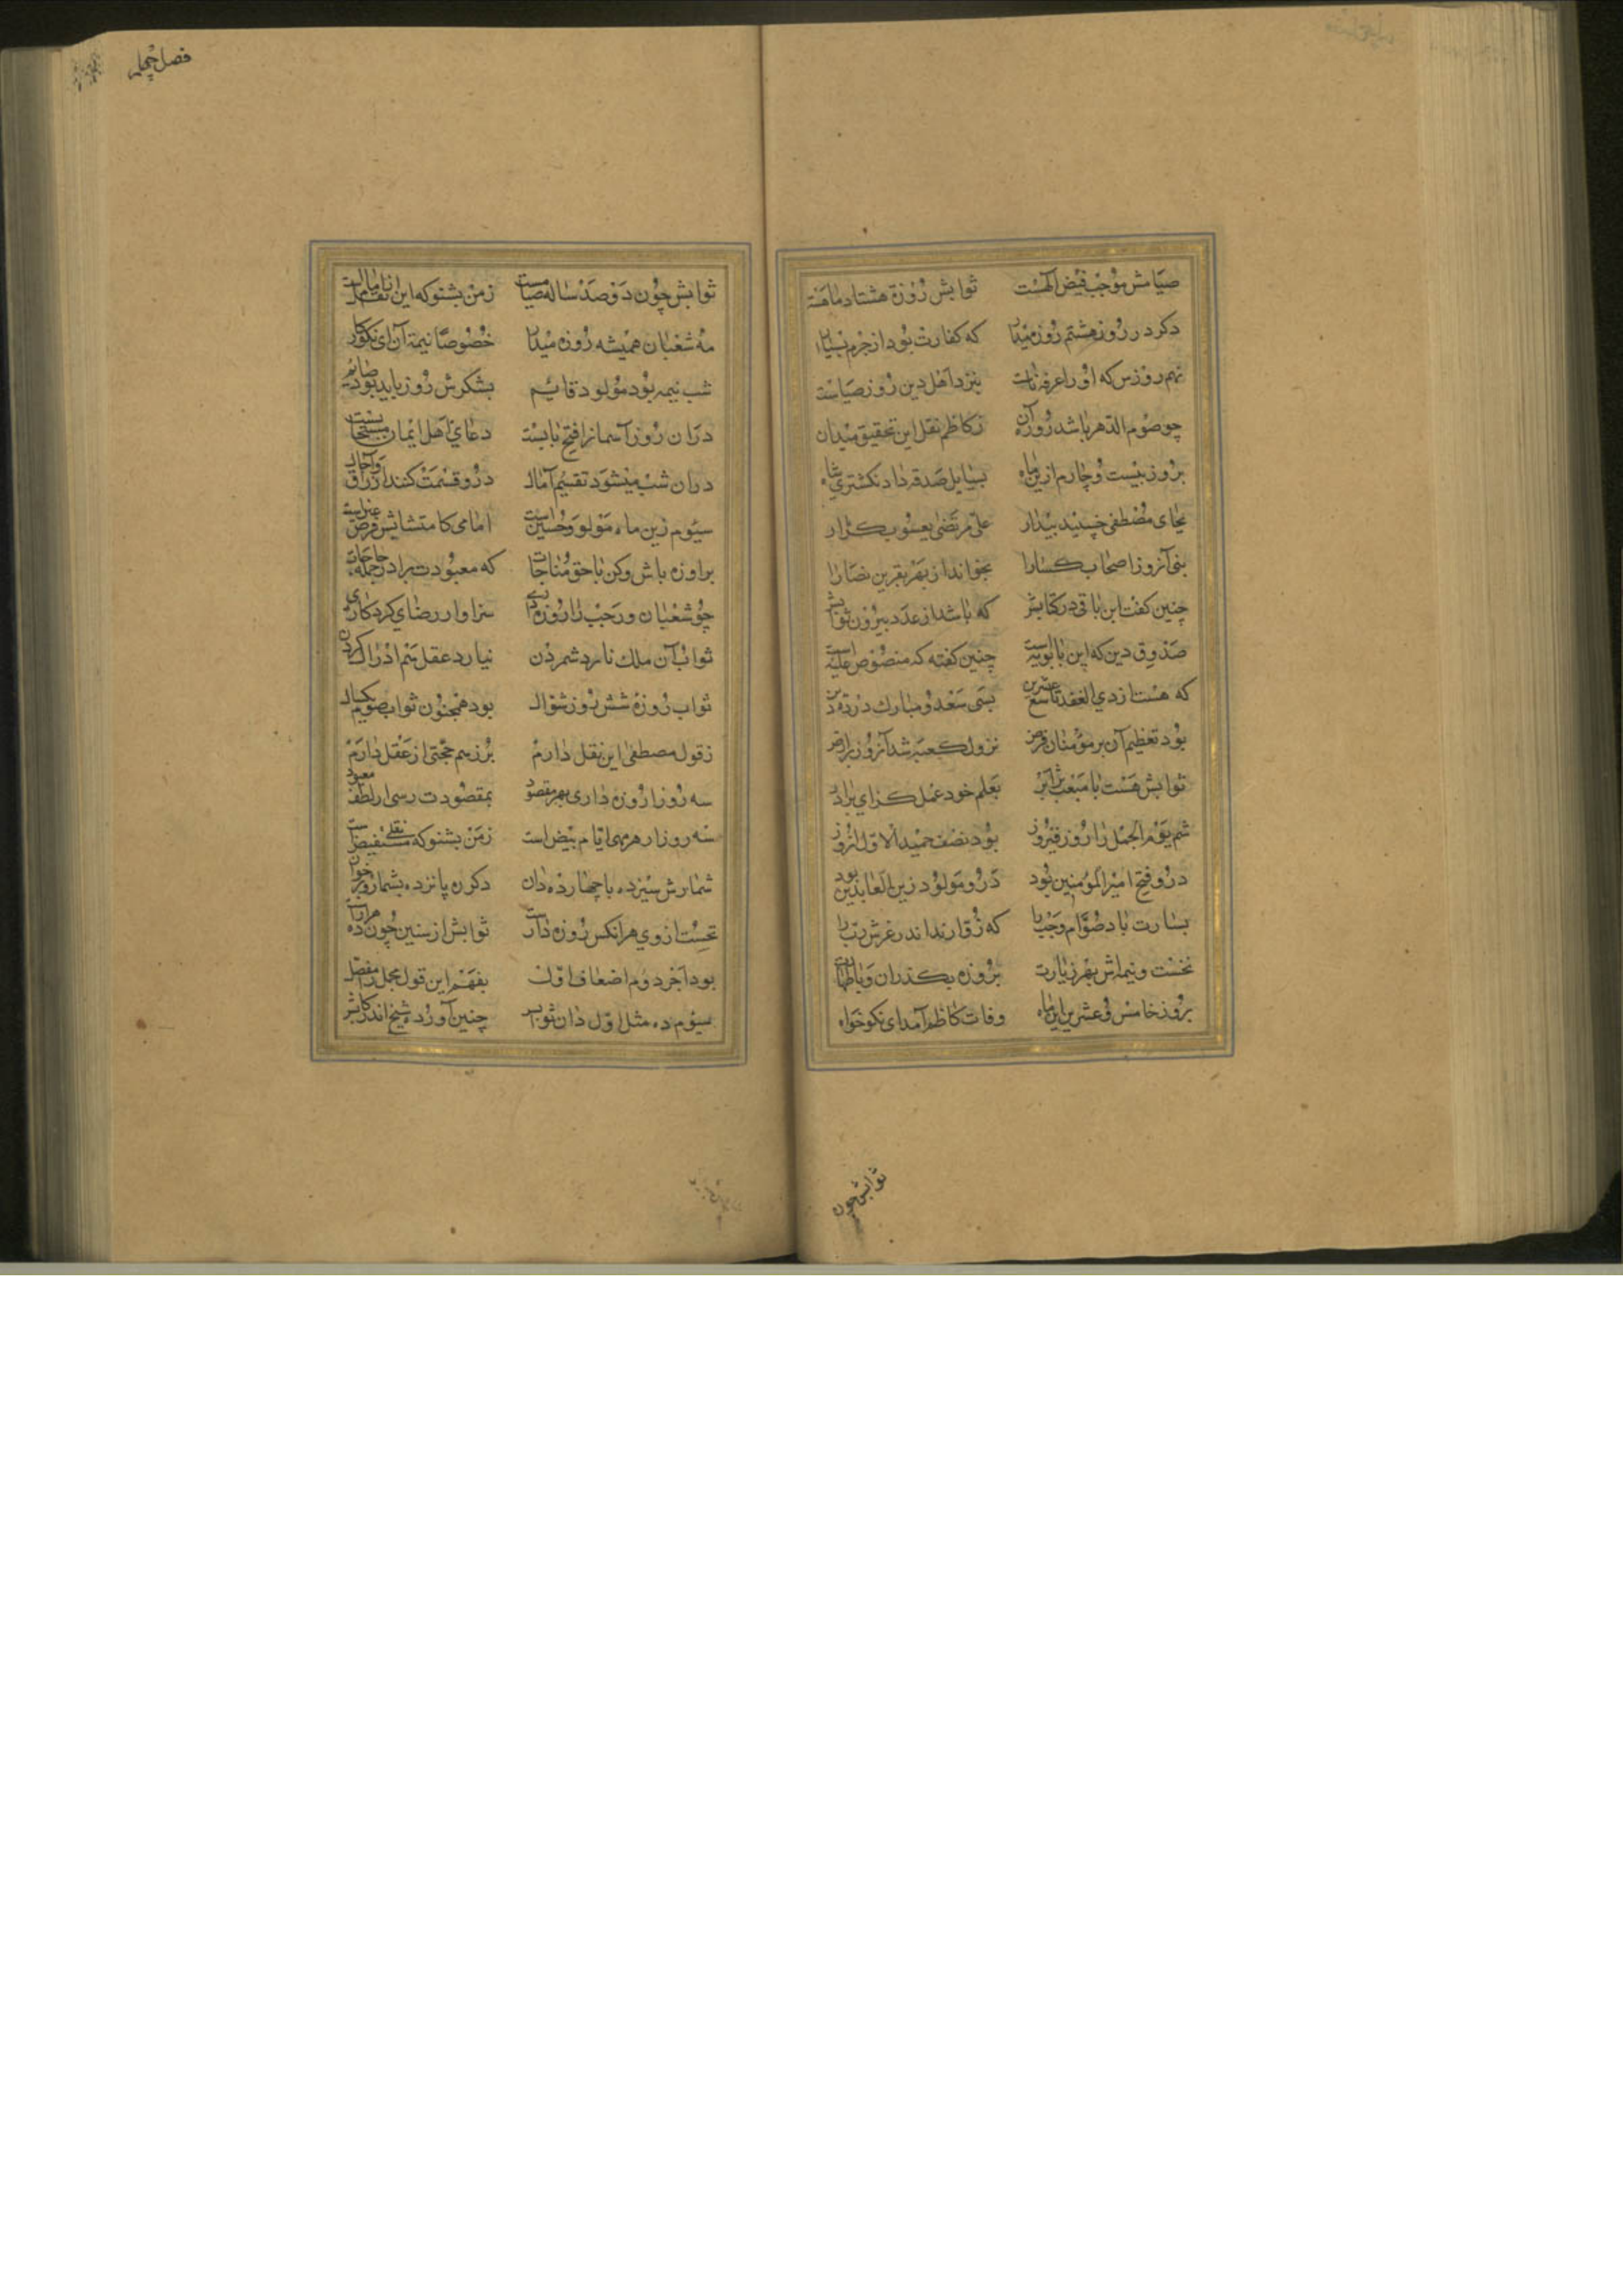 صیامش موجب فیض الهست ثوابش روزهٔ هشتاد ماهست
دکر در روز هشتم روزه میدار که کفارت بود از جرم بسیار
نهم روزس که او را عرفه نامست بنزد اهل دین روز صیامست
چو صوم الدهر باشد روزه آن ز کاظم نقل این تحقیق میدان
بروز بیست و چارم ازین ماه بسایل صدقه داد نکشتری شاه
بجای مصطفی خسپید بیدار علی مرتضی یعسوب کرار
بنی آنروز اصحاب کسا را بخواند از بهر نفرین نصارا
چنین کفت ابن باقی در کتابش که باشد از عدد بیرون ثوابش
صدوق دین که ابن بابویه است چنین کفته که منصوص علیه است
که هست از ذی القعده تاسع عشرین بسی سعد و مبارک در
بود تعظیم آن بر مؤمنان فرض نزول کعبه شد آنروز بر ارض
ثوابش هست با مبعث برابر بعلم خود عمل کن ای برادر
شم یوم الجمل را روز فیروز بود نصف جمید الاول انروز
درو فتح امیر المؤمنین بود درو مولود زین العابدین بود
بشارت باد صوام رجب را که زوارند اندر عرش رب را
نخست و نیمه‌اش بهر زیارت بروزه بکذران و با طهارت
بروز خامس و عشرین این ماه وفات کاظم آمد ای نکوخواه
ثوابش چون
فصل چهلم
ثوابش چون دو صد ساله صیامست ز من بشنو که این نقل از امامست
مه شعبان همیشه روزه میدار خصوصا نیمهٔ آن ای نکوکار
شب نیمه بود مولود قایم بشکرش روز باید بود صایم
در ان روز آسمانرا فتح بابست دعای اهل ایمان مستجابست
دران شب میشود تقسیم آمال درو قسمت کنند ارزاق و آجال
سیوم زین ماه مولود حسین است امامی کامتثالش فرض عین است
برا و روزه باش و کن با حق مناجات که معبودت برارد جمله حاجات
چو شعبان و رجب را روزه داری سزاوار رضای کردکاری
ثواب آن ملک نارد شمردن نیارد عقل هم ادراک کردن
ثواب روزهٔ شش روز شوال بود همچون ثواب صوم یکسال
ز قول مصطفی این نقل دارم برین هم حجتی از عقل دارم
سه روز ار روزه داری بهر مقصود بمقصودت رسی از لطف معبود
سه روز از هر مهی ایام بیض است ز من بشنو که نقلی مستفیض است
شمارش سیزده با چهارده دان دکر ره پانزده بشمار و برخوان
نخست از وی هر انکس روزه دارست ثوابش از سنین چون ده هزارست
بود آخر دوم اضعاف اول بفهم این قول مجمل را مفصل
سیوم ده مثل اول دان ثوابش چنین آورده شیخ اندر کتابش